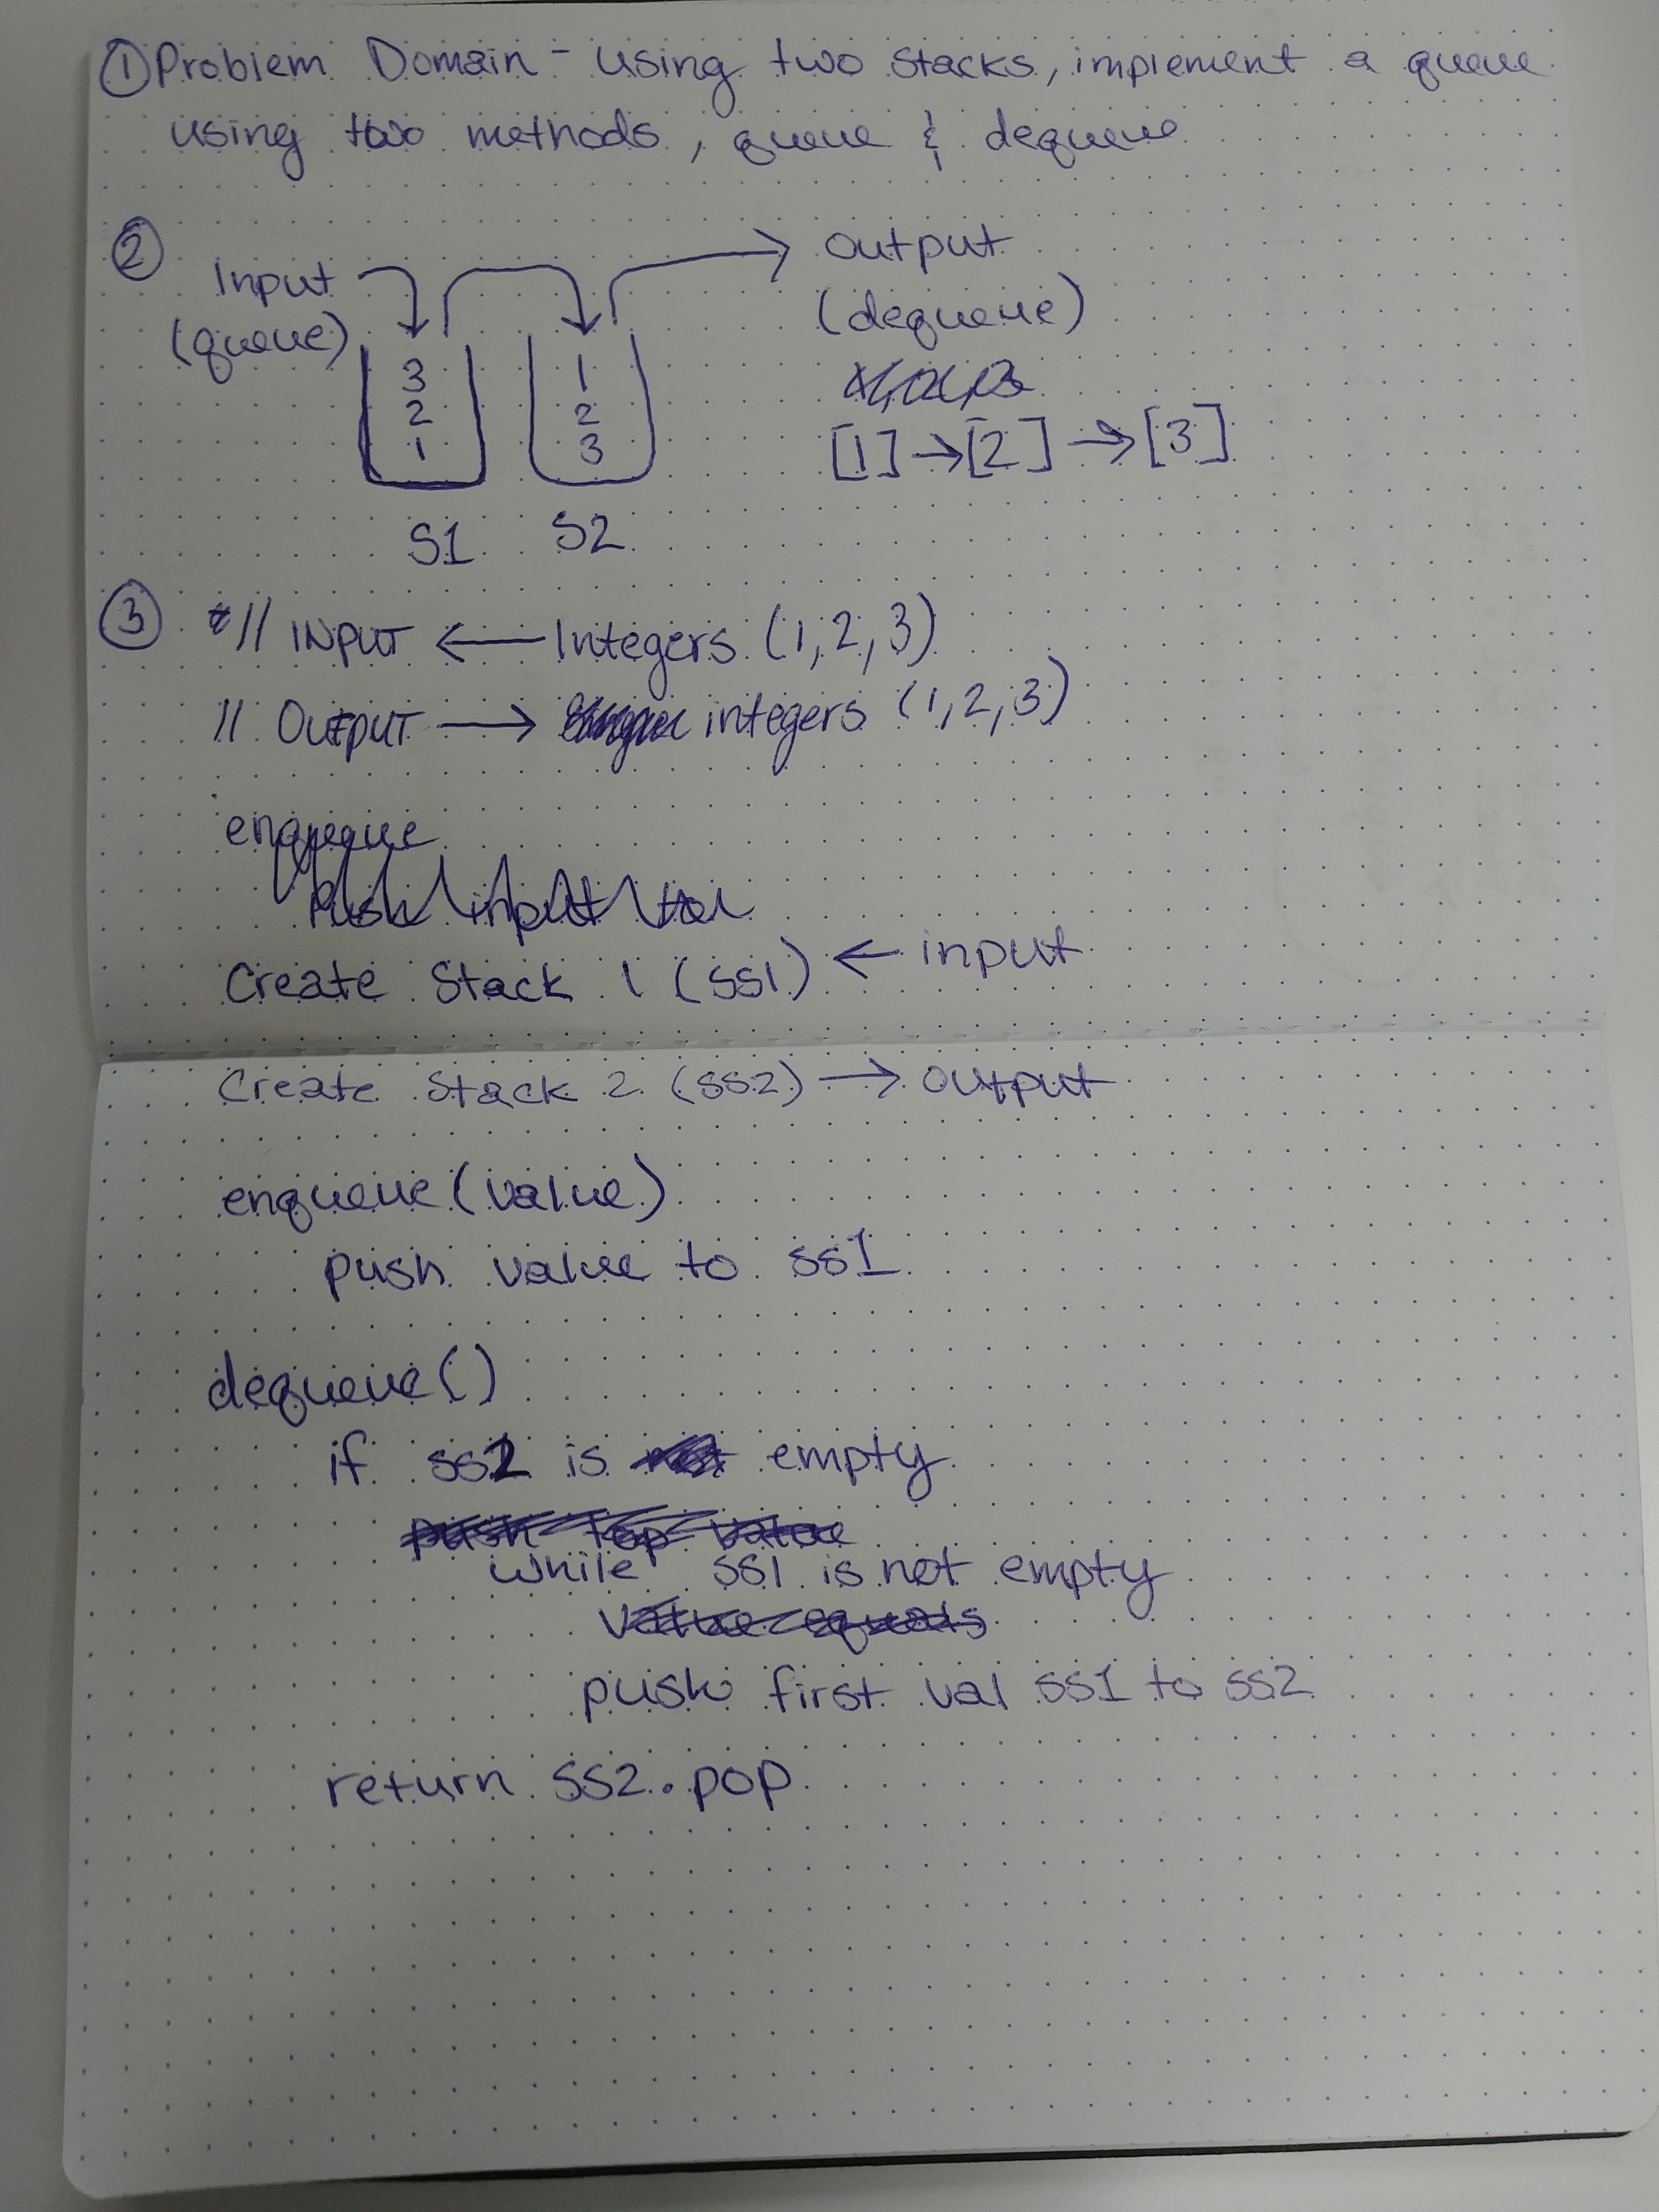 ① Problem Domain - Using two stacks, implement a queue
using two methods, queue & dequeue
②
Input
(queue)
output
(dequeue)
3
2
1
1
2
3
[1] → [2] → [3]
S1
S2
③ // INPUT ← Integers (1, 2, 3)
// OUTPUT → integers (1, 2, 3)
enqueue
Push input val
Create Stack 1 (ss1) ← input
Create Stack 2 (ss2) → output
enqueue (value)
push value to ss1
dequeue ()
if ss2 is not empty
push top value
while ss1 is not empty
value equals
push first val ss1 to ss2
return ss2.pop